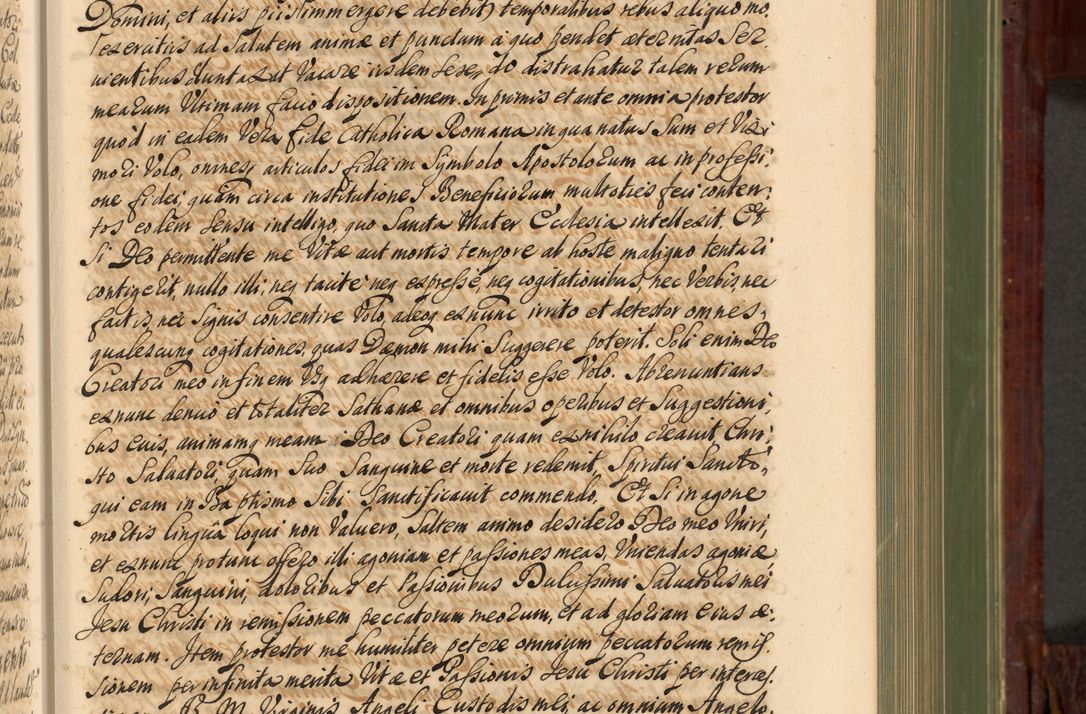 Domini, et aliis piis immergere debebit) temporalibus rebus aliquo mo,
exercitiis ad Salutem animæ et punctum a quo pendet æternitas Ser,
vientibus duntaxat Vacare iisdem sese, do distrahatur talem rerum
mearum Ultimam facio dispositionem. In primis et ante omnia protestor
quod in eadem Vera fide Catholica Romana in qua natus Sum et Vix:
mori Volo, omnes articulos fidei in Symbolo Apostolorum ac in professi,
one fidei, quam circa institutiones Beneficiorum multoties feci conten,
tos eodem Sensu intelligo, quo Sancta Mater Ecclesia intellexit. Et
Si Deo permittente me Vitæ aut mortis tempore ab hoste maligno tentari
contigerit, nullo illi, neq tacite neq expresse, neq cogitationibus, nec Verbis, nec
factis, nec Signis consentire Volo, adeoq exnunc irrito et detestor omnes,
qualescunq cogitationes, quas Dæmon mihi Suggerere poterit. Soli enim Deo
Creatori meo in finem Usq adhærere et fidelis esse Volo. Abrenuntians
exnunc denuo et totaliter Sathanæ et omnibus operibus et Suggestioni,
bus euis, animamq meam Deo Creatori quam ex nihilo creavit, Chri,
sto Salvatori, quam Suo Sanguine et morte redemit, Spiritui Sancto,
qui eam in Baptismo Sibi Sanctificavit commendo. Et Si in agone
mortis linguâ loqui non Valuero, Saltem animo desidero Deo meo Uniri,
et exnunc protunc offero illi agoniam et passiones meas, Uniendas agoniæ
Sudori, Sanguini, doloribus et Passionibus Dulcissimi Salvatoris mei
Jesu Christi in remissionem peccatorum meorum, et ad gloriam eius æ,
ternam. Item protestor me humiliter petere omnium peccatorum remiss,
sionem per infinita merita Vitæ et Passionis Jesu Christi per interces,
B. M. Virginis Angeli Custodis mei, ac omnium Angelo,